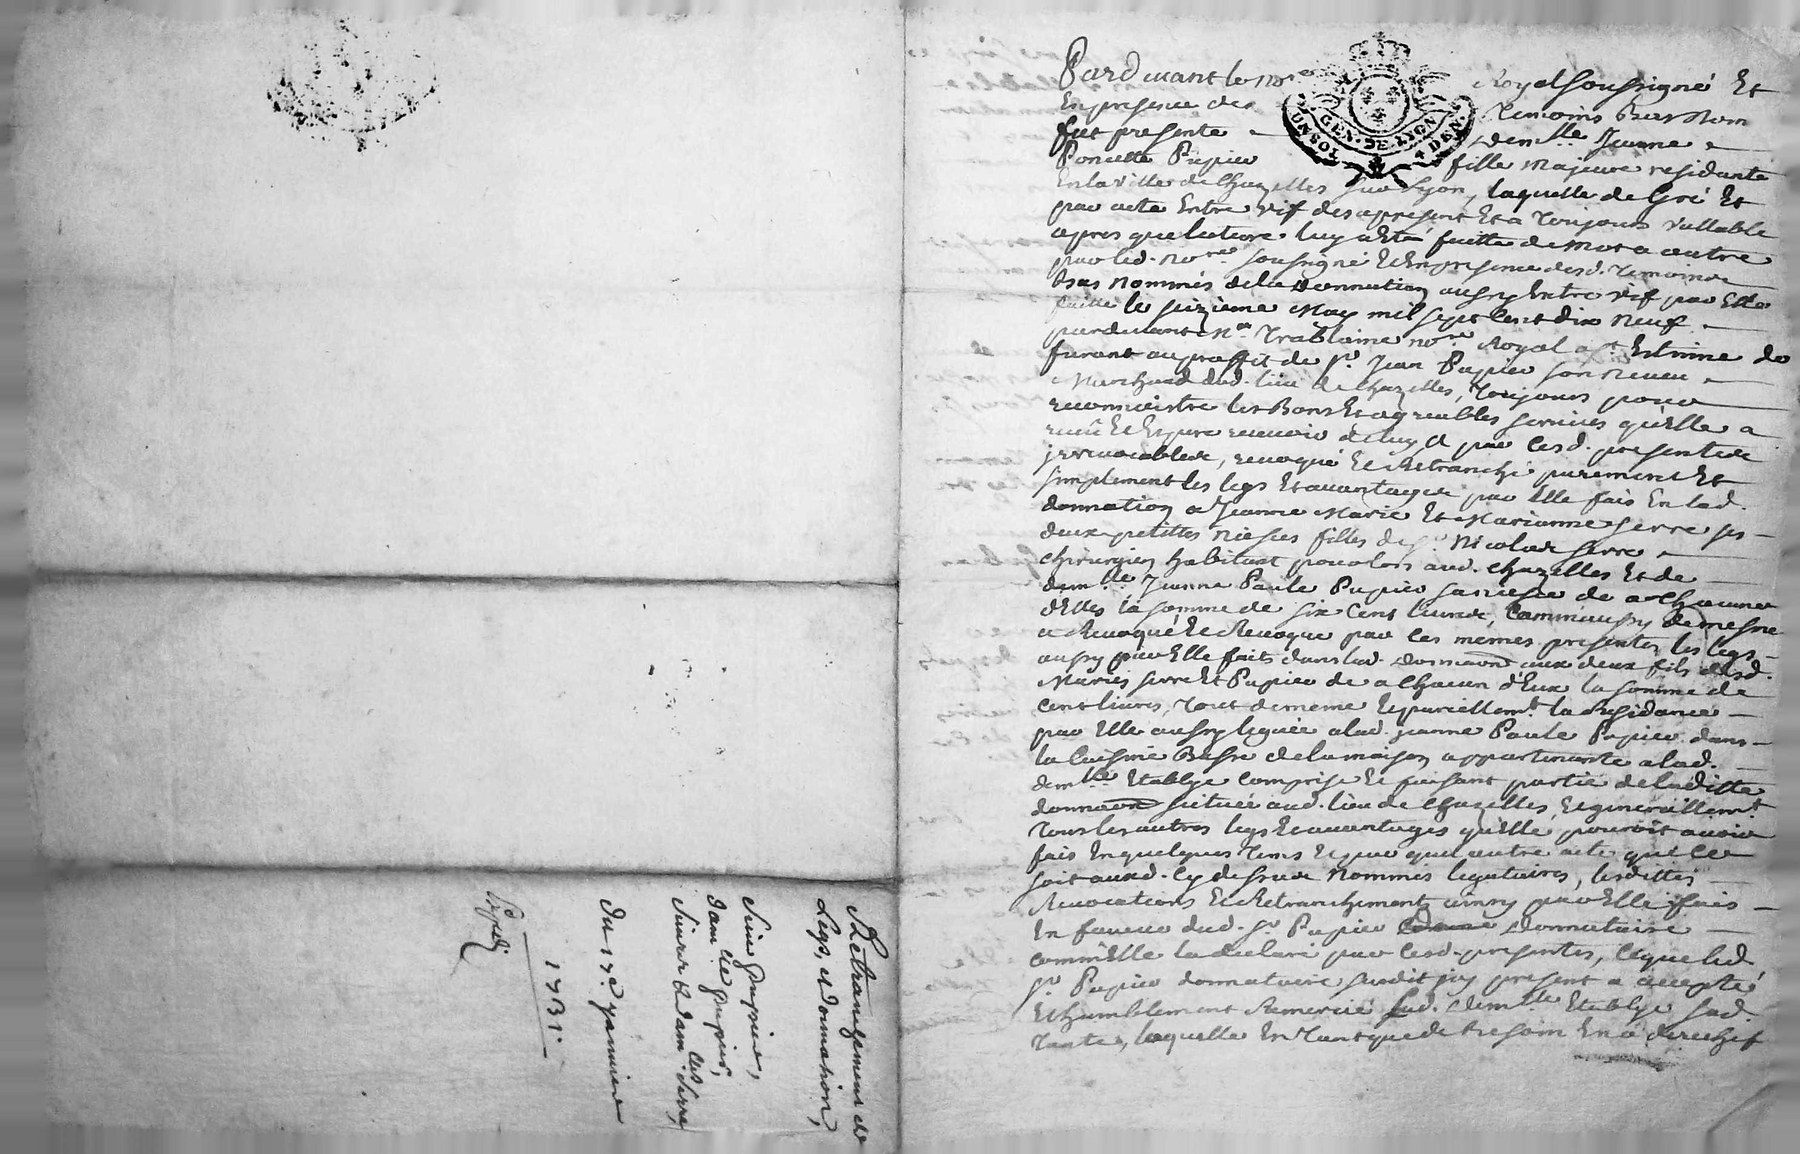 Pardevant le no.re Royal soussigné Et
En presence des Temoins bas nom
fut presente demlle. Jeanne
Poncette Pupier fille majeure residante
En la ville de Chazelles sur Lyon, laquelle de Gré Et
par acte Entre vif des apresent Et a Toujours vallable
apres que lecture luy a Eté faitte de mot a autre
par led. no.re soussigné Et En presence desd. Temoins
bas nommés de la donnation aussy Entre vif par Elle
faitte le seizieme May mil sept Cent dix neuf
pardevant Me. Trablaine no.re Royal a St. Estienne de
furant au proffit de Sr. Jean Pupier son neveu
Marchand dud. lieu de Chazelles, Toujours pour
reconnoistre les Bons Et agreables services qu'Elle a
reçû Et Espere recevoir de luy a par Cesd. presentes
jrrevocables, revoqué Et Retranché purement Et
simplement les legs Et avantages par Elle fais En lad.
donnation a Jeanne Marie Et Marianne Serre ses
deux petittes nieses filles de Sr. Nicolas Serre
chirurgien habitant pour lors aud. Chazelles Et de
demlle. Jeanne Paule Pupier sa niese de a Chacune
d'Elles la somme de six Cens livres, Comm'aussy de mesme
a Revoqué Et Revoque par Ces memes presentes les legs
aussy par Elle faits dans lad. donnaon aux deux fils desd.
Mariés Serre Et Pupier de a Chacun d'Eux la somme de
Cent livres, Tout de meme Et pareillemt. la Residance
par Elle aussy leguée a lad. Jeanne Paule Pupier dans
la Cuisine Basse de la maison appartenante a lad.
demlle Etablye Comprise Et faisant partie de laditte
donnaon scituée aud. lieu de Chazelles, Et generallemt.
Tous les autres legs Et avantages qu'Elle pourroit avoir
fais En quelques Tems Et par quel autre acte que Ce
soit auxd. Cy dessus nommés legataires, lesdittes
Revocations Et Retranchement ainsy par Elle fais
En faveur dud. Sr. Pupier donnataire
comm'Elle la declaré par Cesd. presentes, Ce que led.
Sr. Pupier donnataire susdit jcy present a accepté
Et humblement Remercié lad. demlle Etablye sad.
Tante, laquelle En Tant que de besoin En a derechef
GEN. DE LYON
UN SOL 4 DEN.
Retranchement de
Legs, et donnation,
Sieur Pupier,
damlle Pupier,
Sieur et damlles Serre,
Du 17e janvier
1731.
Expedié